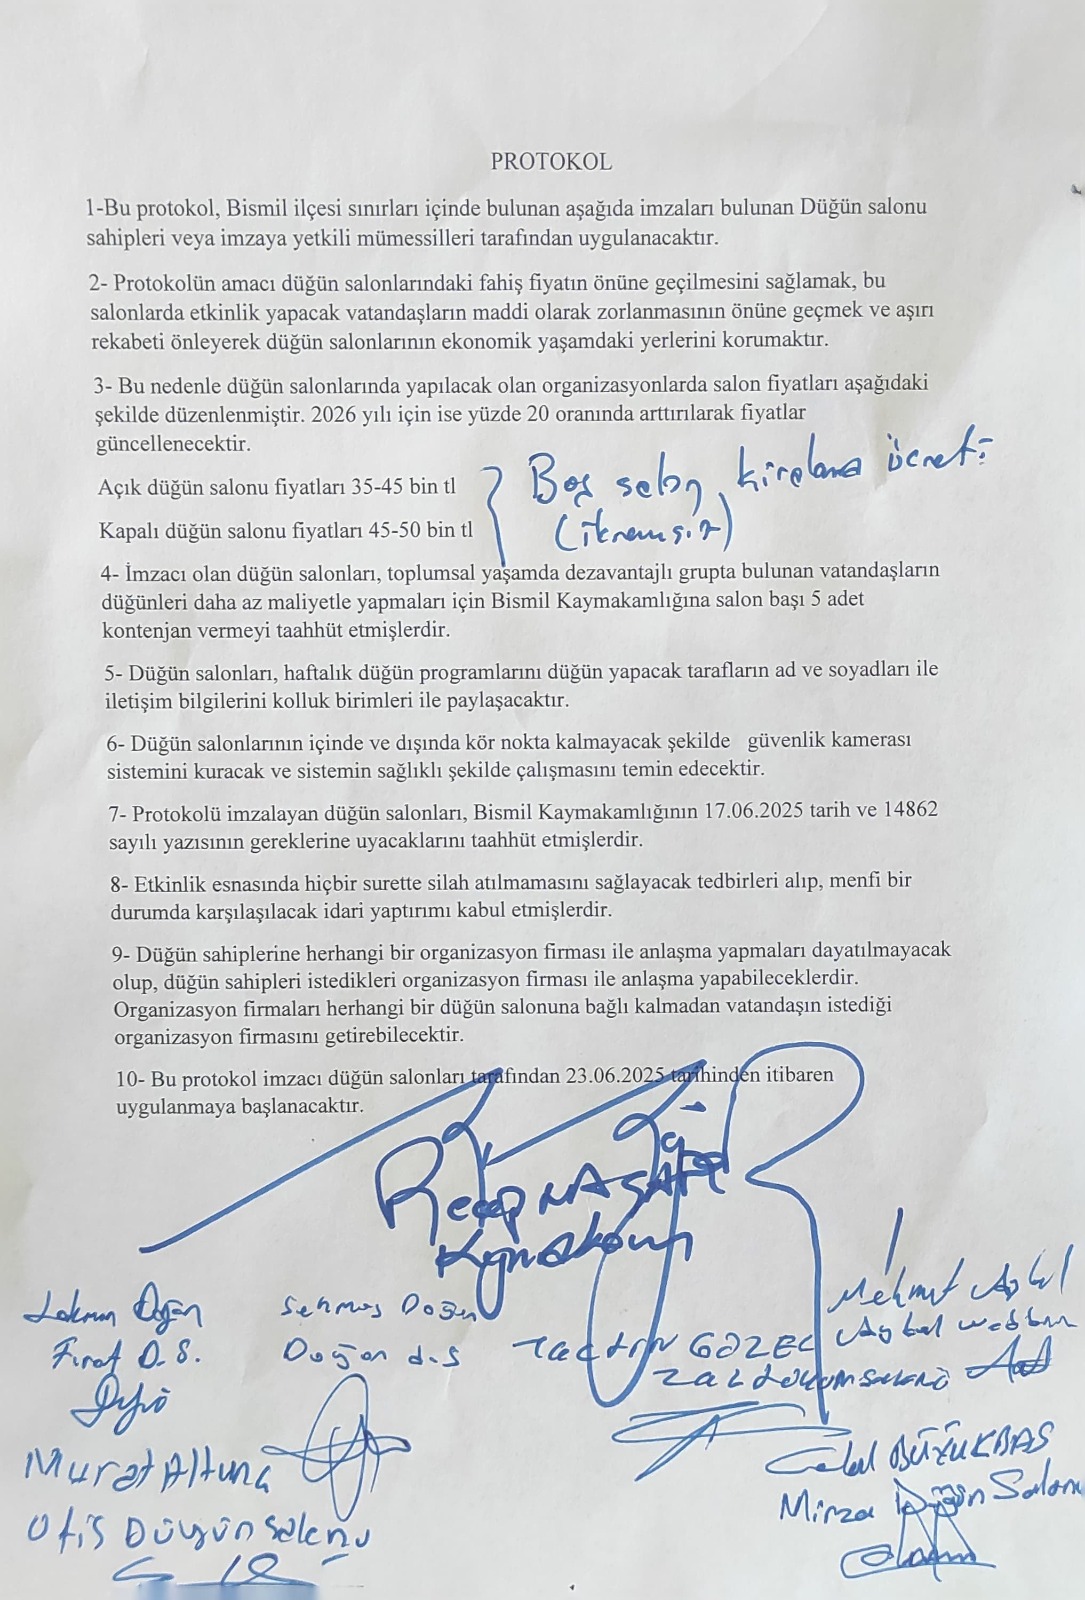 PROTOKOL
1-Bu protokol, Bismil ilçesi sınırları içinde bulunan aşağıda imzaları bulunan Düğün salonu
sahipleri veya imzaya yetkili mümessilleri tarafından uygulanacaktır.
2- Protokolün amacı düğün salonlarındaki fahiş fiyatın önüne geçilmesini sağlamak, bu
salonlarda etkinlik yapacak vatandaşların maddi olarak zorlanmasının önüne geçmek ve aşırı
rekabeti önleyerek düğün salonlarının ekonomik yaşamdaki yerlerini korumaktır.
3- Bu nedenle düğün salonlarında yapılacak olan organizasyonlarda salon fiyatları aşağıdaki
şekilde düzenlenmiştir. 2026 yılı için ise yüzde 20 oranında arttırılarak fiyatlar
güncellenecektir.
Açık düğün salonu fiyatları 35-45 bin tl
Kapalı düğün salonu fiyatları 45-50 bin tl
Boş salon kiralama ücreti
(ikramsız)
4- İmzacı olan düğün salonları, toplumsal yaşamda dezavantajlı grupta bulunan vatandaşların
düğünleri daha az maliyetle yapmaları için Bismil Kaymakamlığına salon başı 5 adet
kontenjan vermeyi taahhüt etmişlerdir.
5- Düğün salonları, haftalık düğün programlarını düğün yapacak tarafların ad ve soyadları ile
iletişim bilgilerini kolluk birimleri ile paylaşacaktır.
6- Düğün salonlarının içinde ve dışında kör nokta kalmayacak şekilde güvenlik kamerası
sistemini kuracak ve sistemin sağlıklı şekilde çalışmasını temin edecektir.
7- Protokolü imzalayan düğün salonları, Bismil Kaymakamlığının 17.06.2025 tarih ve 14862
sayılı yazısının gereklerine uyacaklarını taahhüt etmişlerdir.
8- Etkinlik esnasında hiçbir surette silah atılmamasını sağlayacak tedbirleri alıp, menfi bir
durumda karşılaşılacak idari yaptırımı kabul etmişlerdir.
9- Düğün sahiplerine herhangi bir organizasyon firması ile anlaşma yapmaları dayatılmayacak
olup, düğün sahipleri istedikleri organizasyon firması ile anlaşma yapabileceklerdir.
Organizasyon firmaları herhangi bir düğün salonuna bağlı kalmadan vatandaşın istediği
organizasyon firmasını getirebilecektir.
10- Bu protokol imzacı düğün salonları tarafından 23.06.2025 tarihinden itibaren
uygulanmaya başlanacaktır.
Recep
Kaymakam
Lokman Doğan
Fırat D.S.
Sehmus Doğan
Doğan d.s
GÖZEL
Mehmet Aykal
Aykal
Murat Altuna
Ofis Düğün Salonu
Celal BÜYÜKBAŞ
Mirza Düğün Salonu